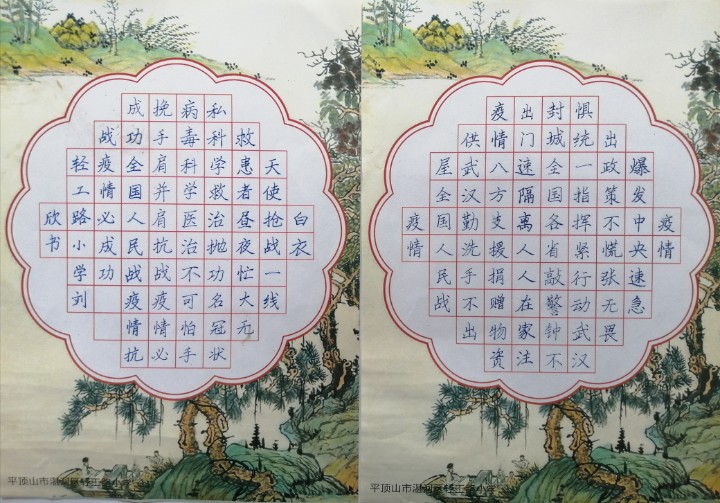 疫情
爆发中央速急
出政策不慌张无畏
惧统一指挥紧行动武汉
封城全国各省敲警钟不
出门速隔离人人在家注
疫情八方支援捐赠物资
供武汉勤洗手不出
屋全国人民战
疫情
白衣
天使抢战一线
救患者昼夜忙大无
私科学救治抛功名冠状
病毒科学医治不可怕手
挽手肩并肩抗战疫情必
成功全国人民战疫情抗
战疫情必成功
轻工路小学刘
欣书
平顶山市湛河区轻工路小学
平顶山市湛河区轻工路小学